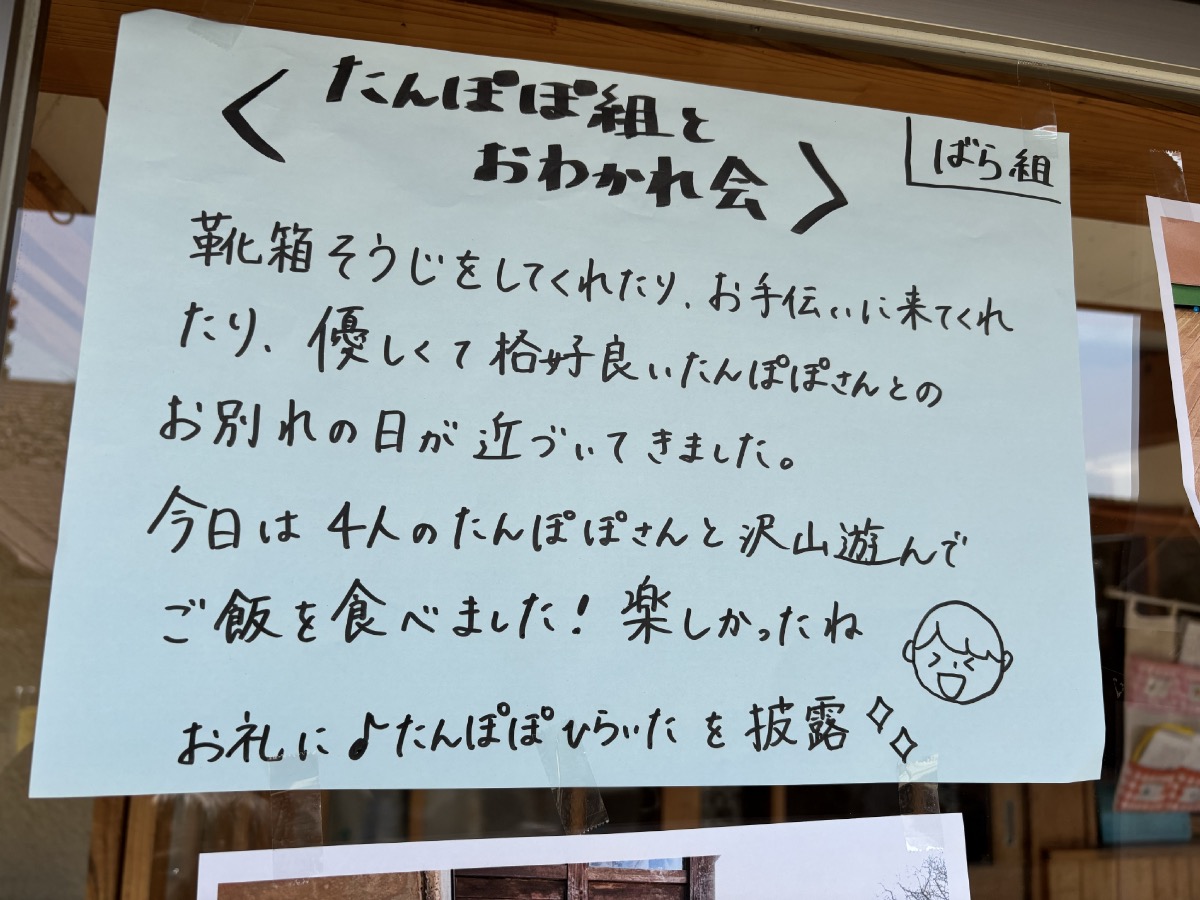 〈たんぽぽ組と
おわかれ会〉
ばら組
靴箱そうじをしてくれたり、お手伝いに来てくれ
たり、優しくて格好良いたんぽぽさんとの
お別れの日が近づいてきました。
今日は4人のたんぽぽさんと沢山遊んで
ご飯を食べました!楽しかったね
お礼に♪たんぽぽひらいたを披露